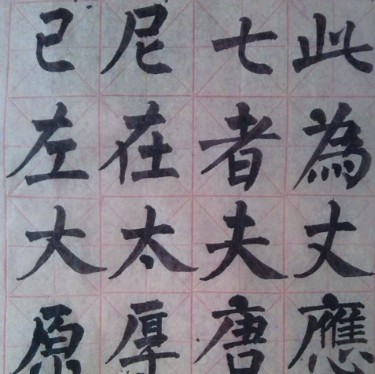 此為丈應
七者夫唐
尼在太厚
己左大原